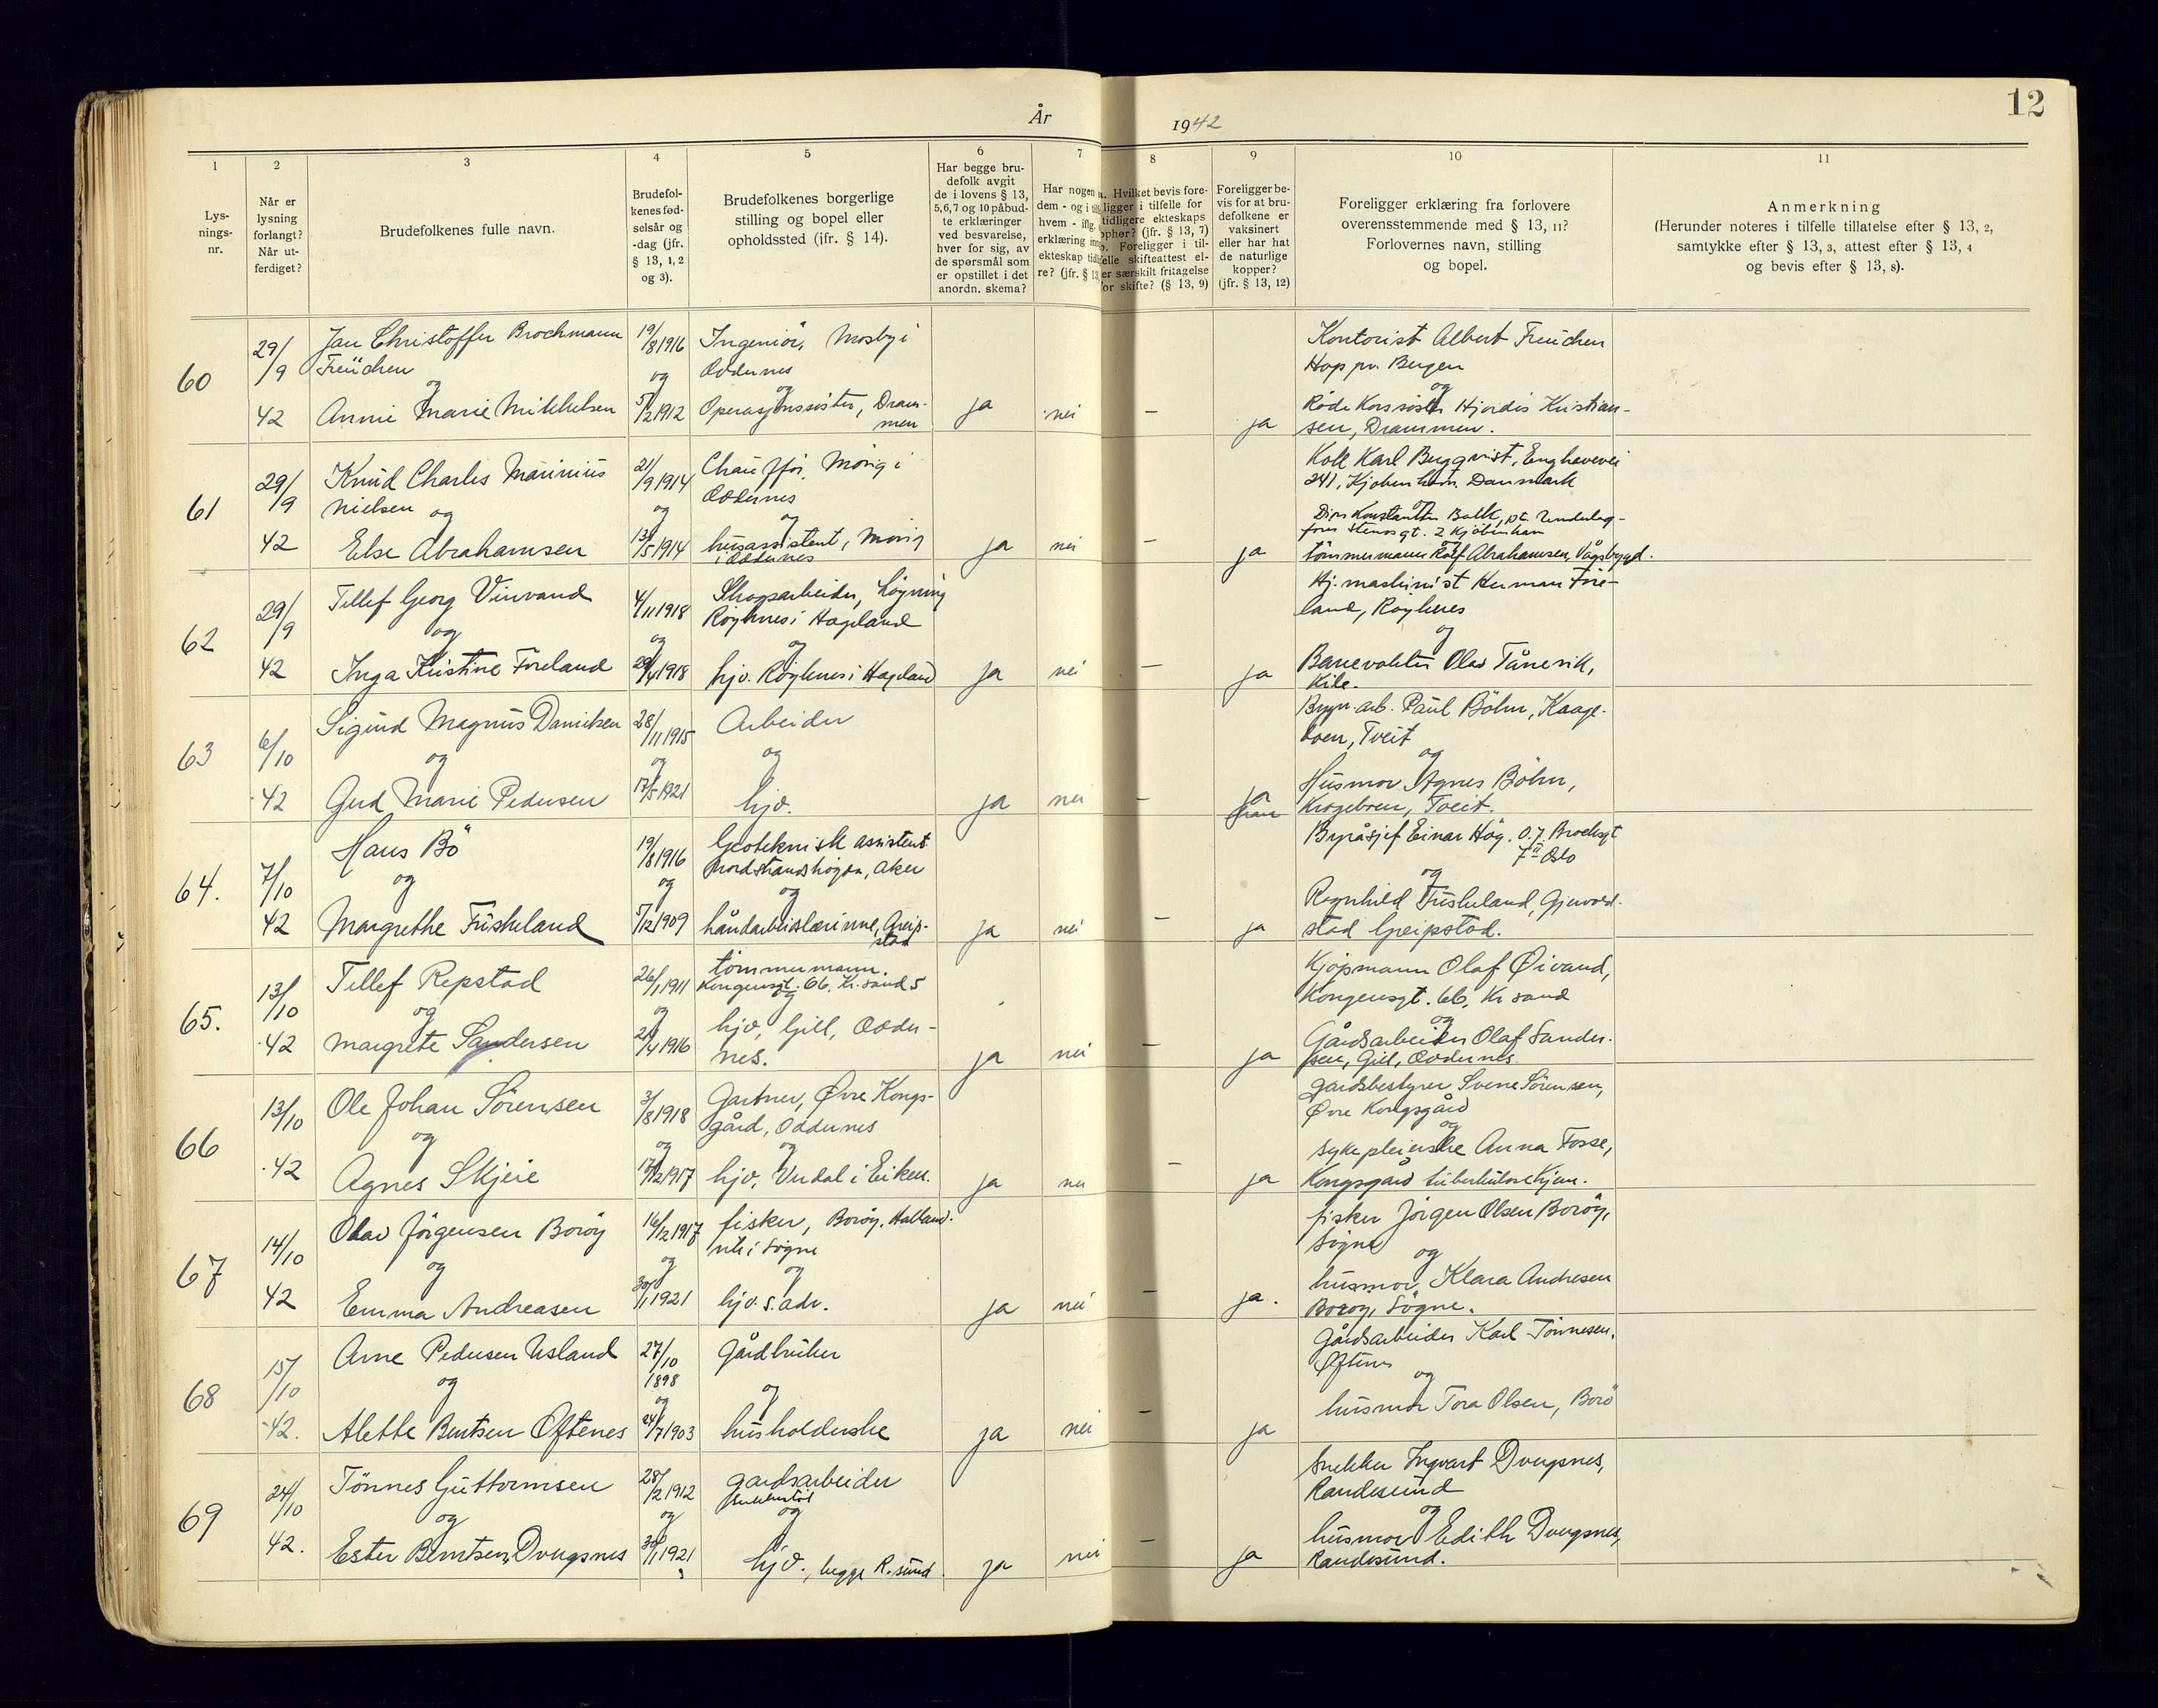 År 1942
12
1
2
3
4
5
6
7
8
9
10
11
Lys-
nings-
nr.
Når er
lysning
forlangt?
Når ut-
ferdiget?
Brudefolkenes fulle navn.
Brudefol-
kenes fød-
selsår og
-dag (jfr.
§ 13, 1, 2
og 3).
Brudefolkenes borgerlige
stilling og bopel eller
opholdssted (jfr. § 14).
Har begge bru-
defolk avgit
de i lovens § 13,
5, 6, 7 og 10 påbud-
te erklæringer
ved besvarelse,
hver for sig, av
de spørsmål som
er opstillet i det
anordn. skema?
Har nogen
dem - og i
hvem - iflg.
erklæring
ekteskap
re? (jfr. § 13
a. Hvilket bevis fore-
ligger i tilfelle for
tidligere ekteskaps
ophør? (jfr. § 13, 7)
b. Foreligger i til-
felle skifteattest el-
er særskilt fritagelse
for skifte? (§ 13, 9)
Foreligger be-
vis for at bru-
defolkene er
vaksinert
eller har hat
de naturlige
kopper?
(jfr. § 13, 12)
Foreligger erklæring fra forlovere
overensstemmende med § 13, 11?
Forlovernes navn, stilling
og bopel.
Anmerkning
(Herunder noteres i tilfelle tillatelse efter § 13, 2,
samtykke efter § 13, 3, attest efter § 13, 4
og bevis efter § 13, 8).
60
29/9
42
Jan Christoffer Brochmann
Freüchen
og
Annie Marie Mikkelsen
19/8 1916
og
5/2 1912
Ingeniör, Mosby i
Oddernes
og
Operasjonssöster, Dram-
men
ja
nei
—
ja
Kontorist Albert Freüchen
Hop pr. Bergen
og
Röde Kors söster Hjördis Kristian-
sen, Drammen.
61
29/9
42
Knud Charles Marinius
Nielsen og
Else Abrahamsen
21/9 1914
og
13/5 1914
Chaufför, Mosby i
Oddernes
og
husassistent, Mosby
i Oddernes
ja
nei
—
ja
Karl Bergqvist, Enghavevei
241, Kjöbenhavn Danmark
2 Kjöbenhavn
tömmermann Rolf Abrahamsen, Vågsbygd.
62
29/9
42
Tellef Georg Vinvand
og
Inga Kristine Foreland
4/11 1918
og
29/4 1918
Skogsarbeider,
Röyknes i Hægeland
og
hjv. Röyknes i Hægeland
ja
nei
—
ja
Hj. maskinist Herman Fore-
land, Röyknes
og
Banevokter Olav Tånevik,
Kile.
63
6/10
42
Sigurd Magnus Danielsen
og
Gerd Marie Pedersen
28/11 1915
og
17/5 1921
Arbeider
og
hjv.
ja
nei
—
ja
Bryg. arb. Paul Böhn, Kaage-
boen, Tveit
og
Husmor Agnes Böhn,
Krageboen, Tveit.
64.
7/10
42
Hans Bö
og
Margrethe Fuskeland
19/8 1916
og
5/12 1909
Geoteknisk assistent
Nordstrandshögda, Aker
og
håndarbeislærinne, Greip-
stad
ja
nei
—
ja
Byråsjef Einar Høg. O. J. Brochsgt
7 II Oslo
og
Ragnhild Fuskeland,
stad Greipstad.
65.
13/10
42
Tellef Repstad
og
Margrete Sandersen
26/1 1911
og
21/4 1916
tömmermann.
Kongensgt. 66, Kr.sand S
og
hjv, Gill, Odder-
nes.
ja
nei
—
ja
Kjöpmann Olaf Øivand,
Kongensgt. 66, Kr sand
og
Gårdsarbeider Olaf Sander-
sen, Gill, Oddernes.
66
13/10
42
Ole Johan Sörensen
og
Agnes Skjeie
3/8 1918
og
17/12 1917
Gartner, Øvre Kongs-
gård, Oddernes
og
hjv, Verdal i Eiken.
ja
nei
—
ja
gardsbestyrer Svene Sörensen,
Øvre Kongsgård
og
sykepleierske Anna Fosse,
Kongsgård tuberkulosehjem.
67
14/10
42
Olav Jörgensen Boröy
og
Emma Andreasen
16/12 1917
og
30/1 1921
fisker, Boröy, Halland-
vik i Sögne
og
hjv. s. adr.
ja
nei
—
ja.
fisker Jörgen Olsen Boröy,
Sögne
og
husmor Klara Andresen
Boröy, Sögne.
68
15/10
42.
Arne Pedersen Usland
og
Alette Berntsen Oftenes
27/10
1898
og
24/7 1903
Gårdbruker
og
husholderske
ja
nei
—
ja
Gårdsarbeider Karl Tönnesen,
Oftenes
og
husmor Tora Olsen, Borö
69
24/10
42.
Tönnes Guttormsen
og
Ester Berntsen Dvergsnes
28/2 1912
og
30/1 1921
gardsarbeider
og
hjv., begge R.sund
ja
nei
—
ja
Snekker Ingvart Dvergsnes,
Randesund
og
husmor Edith Dvergsnes,
Randesund.